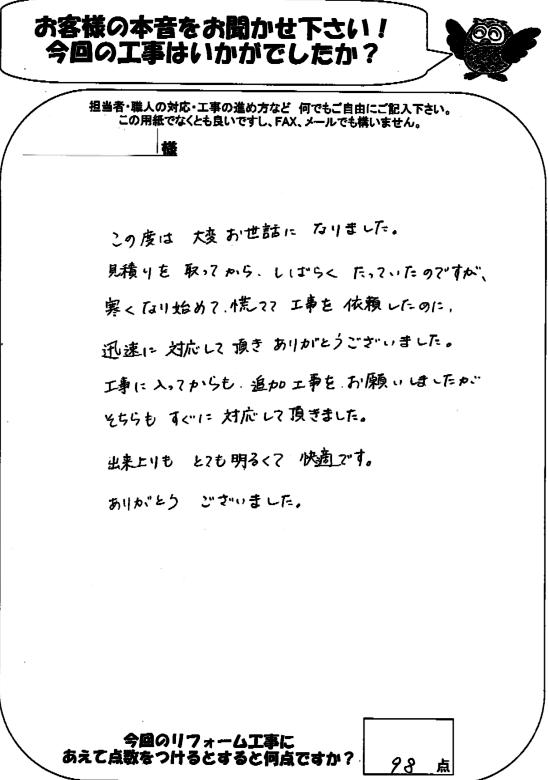 お客様の本音をお聞かせ下さい！
今回の工事はいかがでしたか？
担当者・職人の対応・工事の進め方など 何でもご自由にご記入下さい。
この用紙でなくとも良いですし、FAX、メールでも構いません。
様
この度は 大変 お世話に なりました。
見積りを 取ってから、しばらく たっていたのですが、
寒くなり始めて、慌てて 工事を 依頼したのに、
迅速に 対応して頂き ありがとうございました。
工事に入ってからも、追加工事を お願いしましたが
そちらも すぐに 対応して頂きました。
出来上りも とても明るくて 快適です。
ありがとう ございました。
今回のリフォーム工事に
あえて点数をつけるとすると何点ですか？
98 点